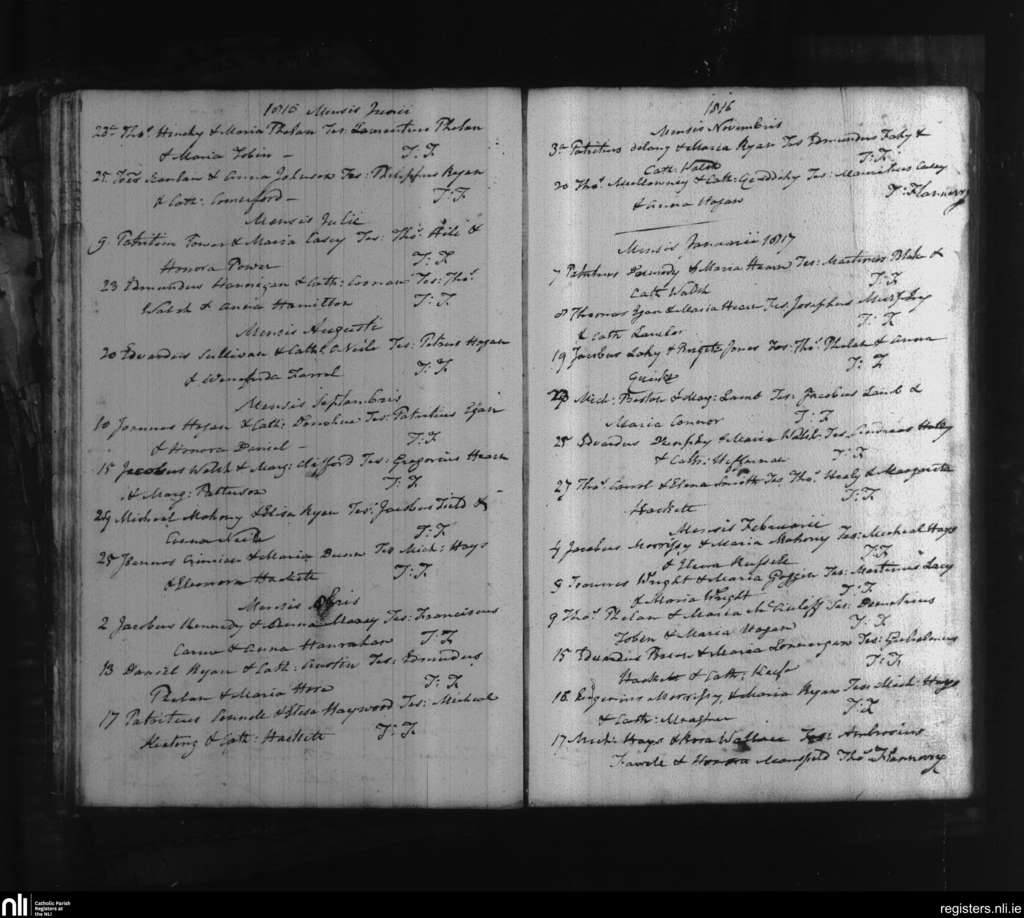 1816 Mensis Junii
23d Thos. Henchy & Maria Phelan Tes: Laurentius Phelan
& Maria Tobin — T: F
25 Scanlan & Anna Johnson Tes: Philippus Ryan
& Cath: Comerford — T: F
Mensis Julii
9 Patritius Power & Maria Casey Tes: Thos. &
Honora Power T: F
23 Edmundus Hannigan & Cath: Tes: Thos.
Walsh & Anna Hamilton T: F
Mensis Augusti
20 Edvardus Sullivan & Cath: O Neile Tes: Petrus Hogan
& Winefrida Farrel T: F
Mensis Septembris
10 Joannes Hogan & Cath: Donohue Tes: Patritius Egan
& Honora Daniel — T: F
15 Jacobus Welsh & Marg: Clifford Tes: Gregorius Hearn
& Marg: Patterson T: F
24 Michael Mahony & Elisa Ryan Tes: Jacobus Field &
Anna T: F
25 Joannes & Maria Tes Mich: Hays
& Eleonora Hackett T: F
Mensis 8bris
2 Jacobus Kennedy & Tes: Franciscus
& Anna Hanrahan T: F
13 Daniel Ryan & Cath: Austin Tes: Edmundus
Phelan & Maria Hore T: F
17 Patritius & Elisa Haywood Tes: Micheal
Keating & Cath: Hackett T: F
1816
Mensis Novembris
3d Patritius Delany & Maria Ryan Tes Edmundus Fahy &
Cath: Walsh T: F
20 Thos. Mullowney & Cath: Tes: Mauritius Casey
& Anna Hogan T: Flannery
Mensis Januarii 1817
7 Patritius & Maria Hearn Tes: Martinus Blake &
Cath: Walsh T: F
8 Thomas Egan & Maria Tes. Josephus Murphy
& Cath Lawlor T: F
19 Jacobus & Brigita Jones Tes: Thos. Phelan & Anna
T: F
23 Mich: Preston & Marg: Lamb Tes: Jacobus Lamb &
Maria Connor T: F
25 Edvardus Dunphy & Maria Walsh Tes. Andreas Haley
& Cath: Heffernan T: F
27 Thos. Carrol & Elena Smith Tes Thos. Healy & Margarita
Hackett T: F
Mensis Februarii
4 Jacobus Morrissy & Maria Mahony Tes: Micheal Hays
& Elena Russell T: F
9 Joannes Wright & Maria Goggin Tes: Martinus Lacy
& Maria Wright T: F
9 Thos. Phelan & Maria Tes: Demetrius
Tobin & Maria Hogan T: F
15 Edvardus & Maria Lonnergan Tes:
Hackett & Cath: T: F
16 Eugenius Morrissy & Maria Ryan Tes: Mich: Hays
& Cath: Meagher T: F
17 Mich: Hays & Rosa Wallace Tes: Ambrosius
& Honora Mansfield Thos. Flannery
nli
Catholic Parish
Registers at
the NLI
registers.nli.ie